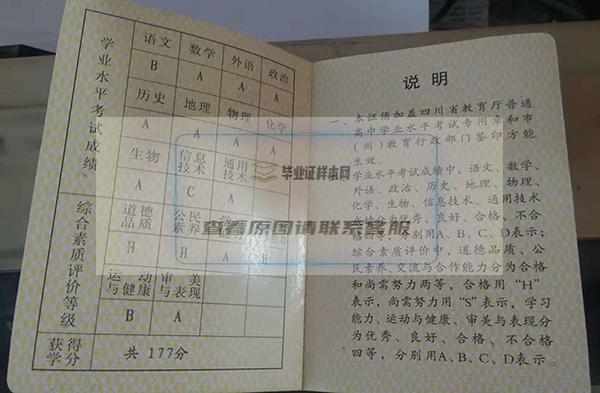 学业水平考试成绩
语文 数学 外语 政治
B A A A
历史 地理 物理 化学
A A A
生物 信息技术 通用技术
A C A
综合素质评价等级
道德品质 公民素养
H H A H
运动与健康 审美与表现
B A
获得学分
共 177分
说明
一、本证须加盖四川省教育厅普通
高中学业水平考试专用章和市
(州)教育行政部门签印方能
生效。
学业水平考试成绩中,语文、数学、
外语、政治、历史、地理、物理、
化学、生物、信息技术、通用技术
分为优秀、良好、合格、不合
格四等,分别用A、B、C、D表示;
综合素质评价中,道德品质、公
民素养、交流与合作能力分为合格
和尚需努力两等,合格用“H”
表示,尚需努力用“S”表示,学习
能力、运动与健康、审美与表现分
为优秀、良好、合格、不合格
四等,分别用A、B、C、D表示。
毕业证样本网
查看原图请联系客服